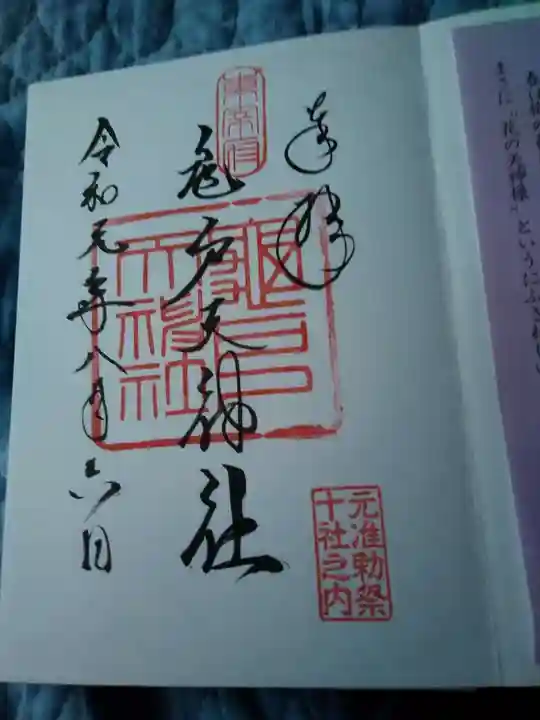 奉拝
亀戸天神社
令和元年八月六日
東宰府
亀戸
天神社
元准勅祭
十社之内
まさに「花の天神様」というにふさわしい